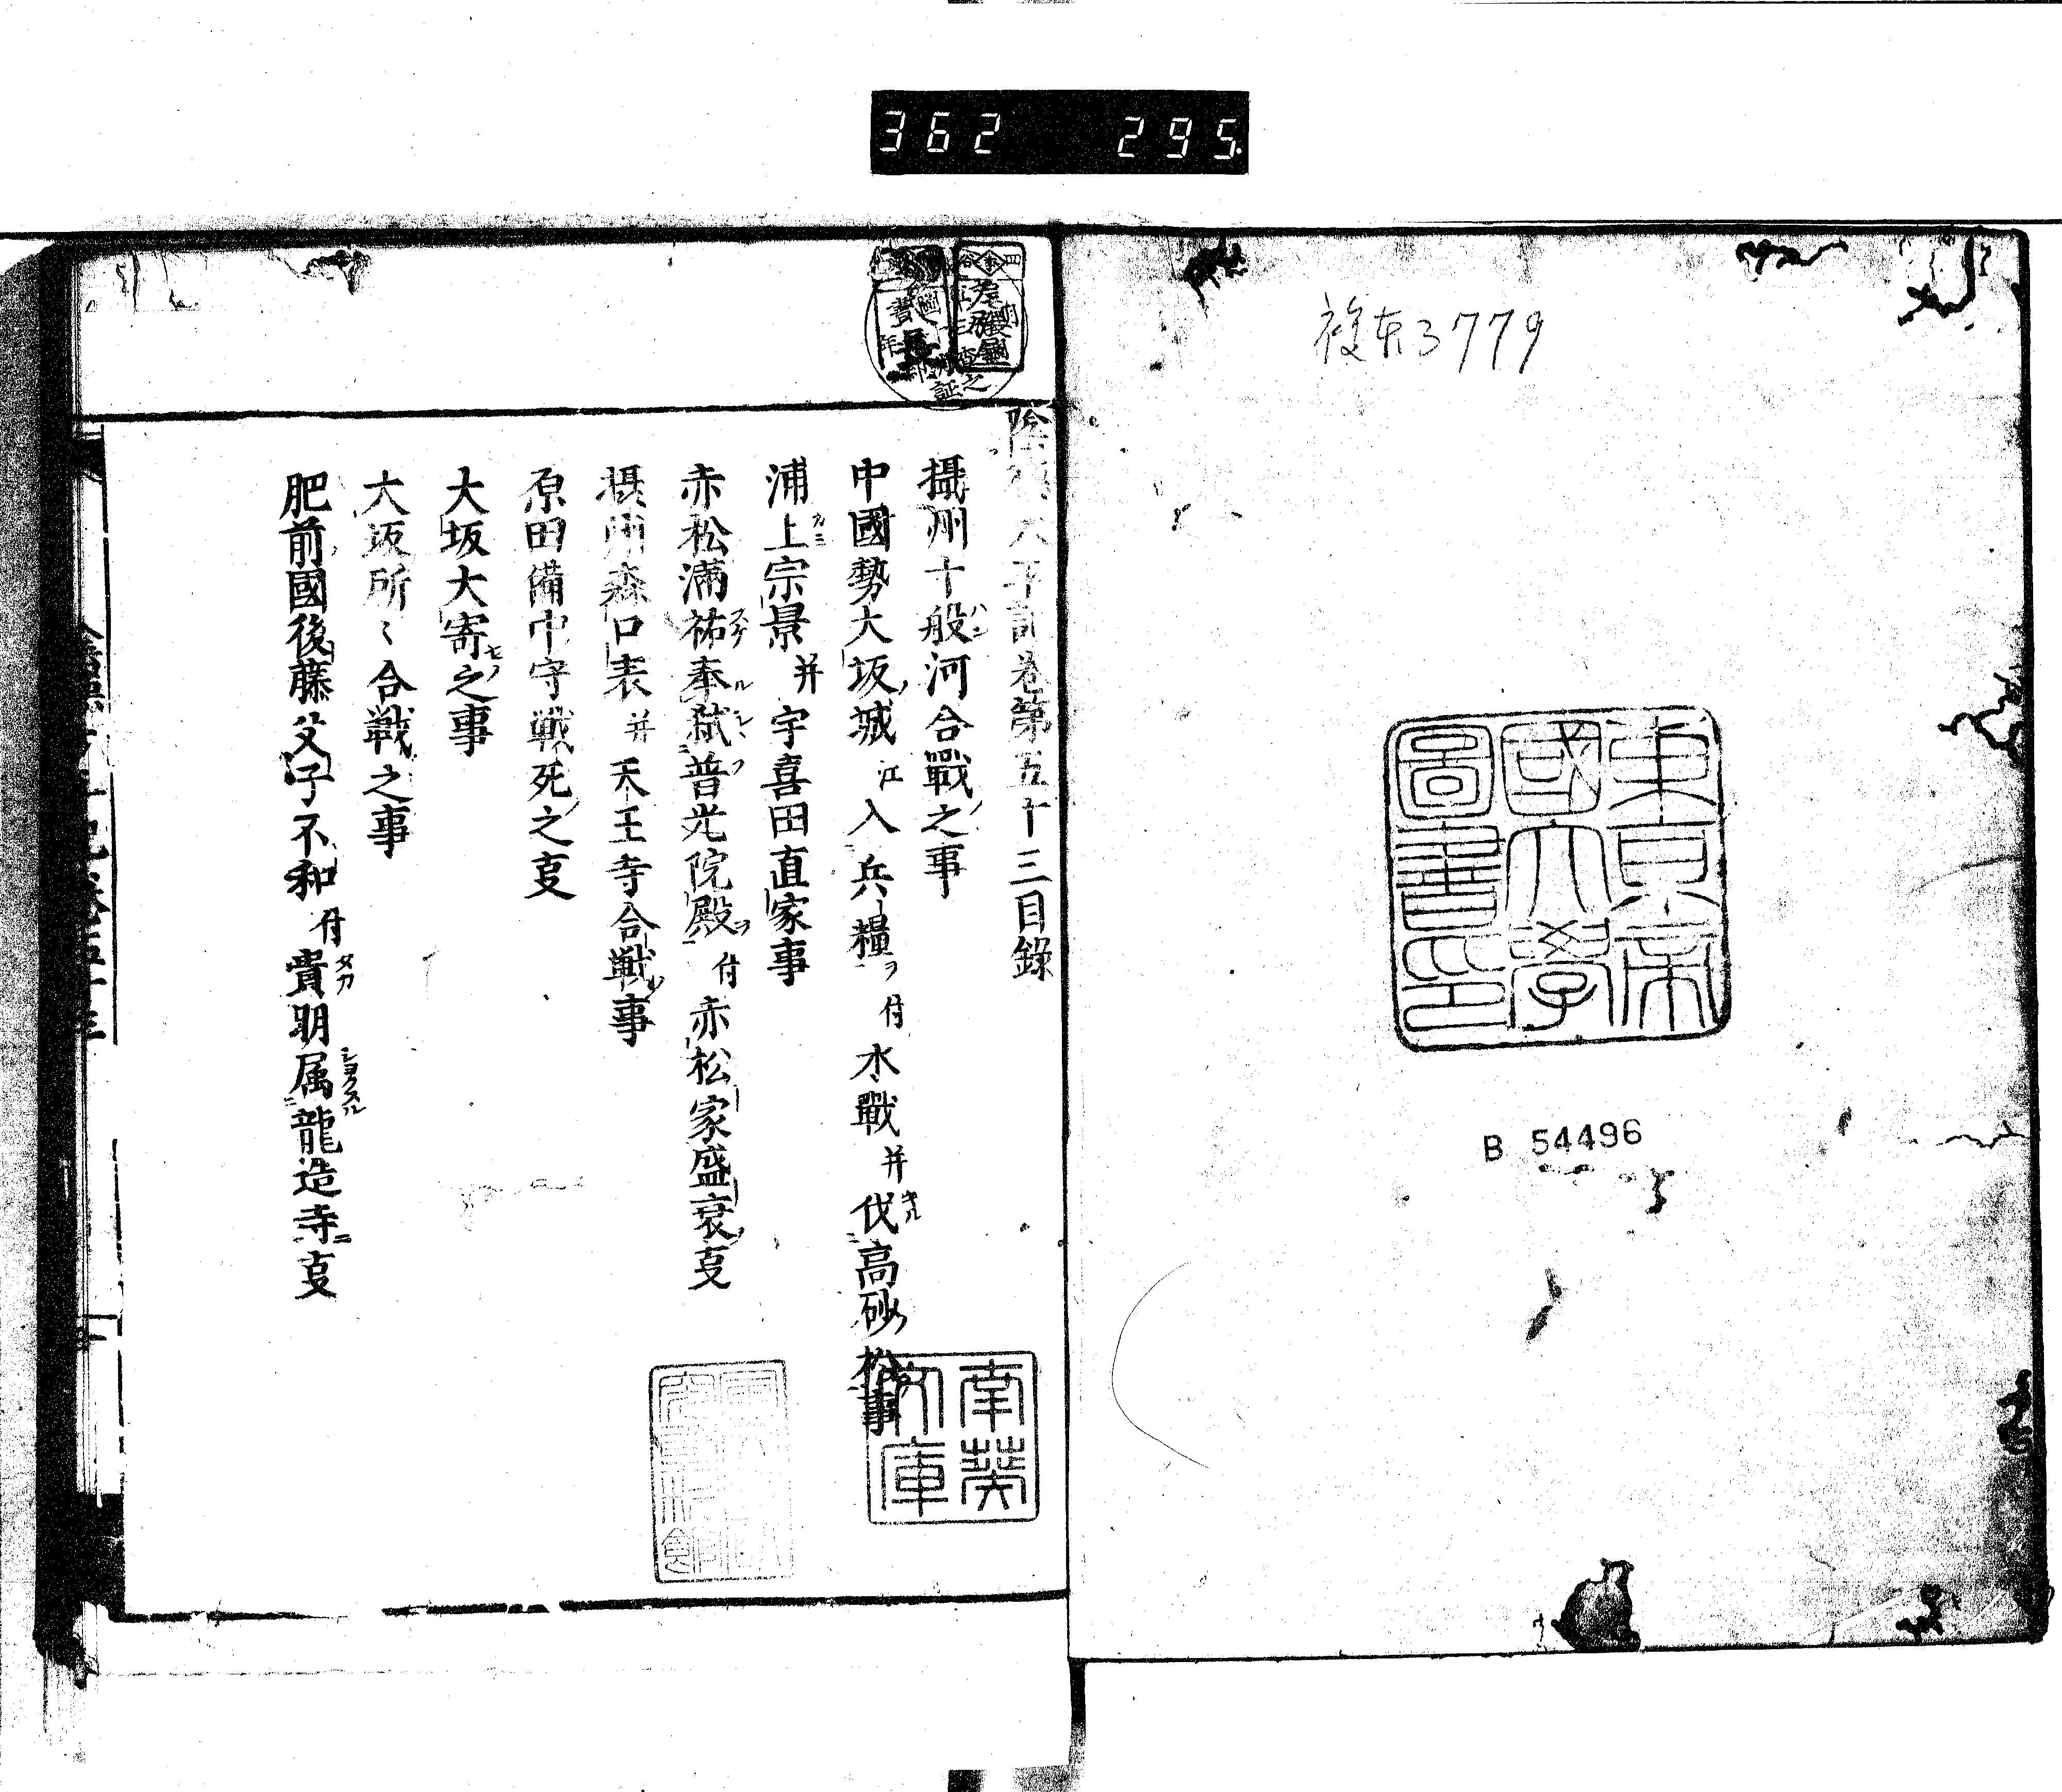 362 295.
複東3779
東京帝國大學圖書印
B 54496
陰徳太平記卷第五十三目録
攝州十般河合戰之事
中國勢大坂城江入兵糧ヲ付水戰并伐高砂ノ松事
浦上宗景并宇喜田直家事
赤松満祐奉弑普光院殿ヲ付赤松家盛衰㕝
摂州森口表并天王寺合戦事
原田備中守戦死之㕝
大坂大寄之事
大坂所〻合戦之事
肥前國後藤父子不和付貴明属龍造寺ニ㕝
南葵文庫